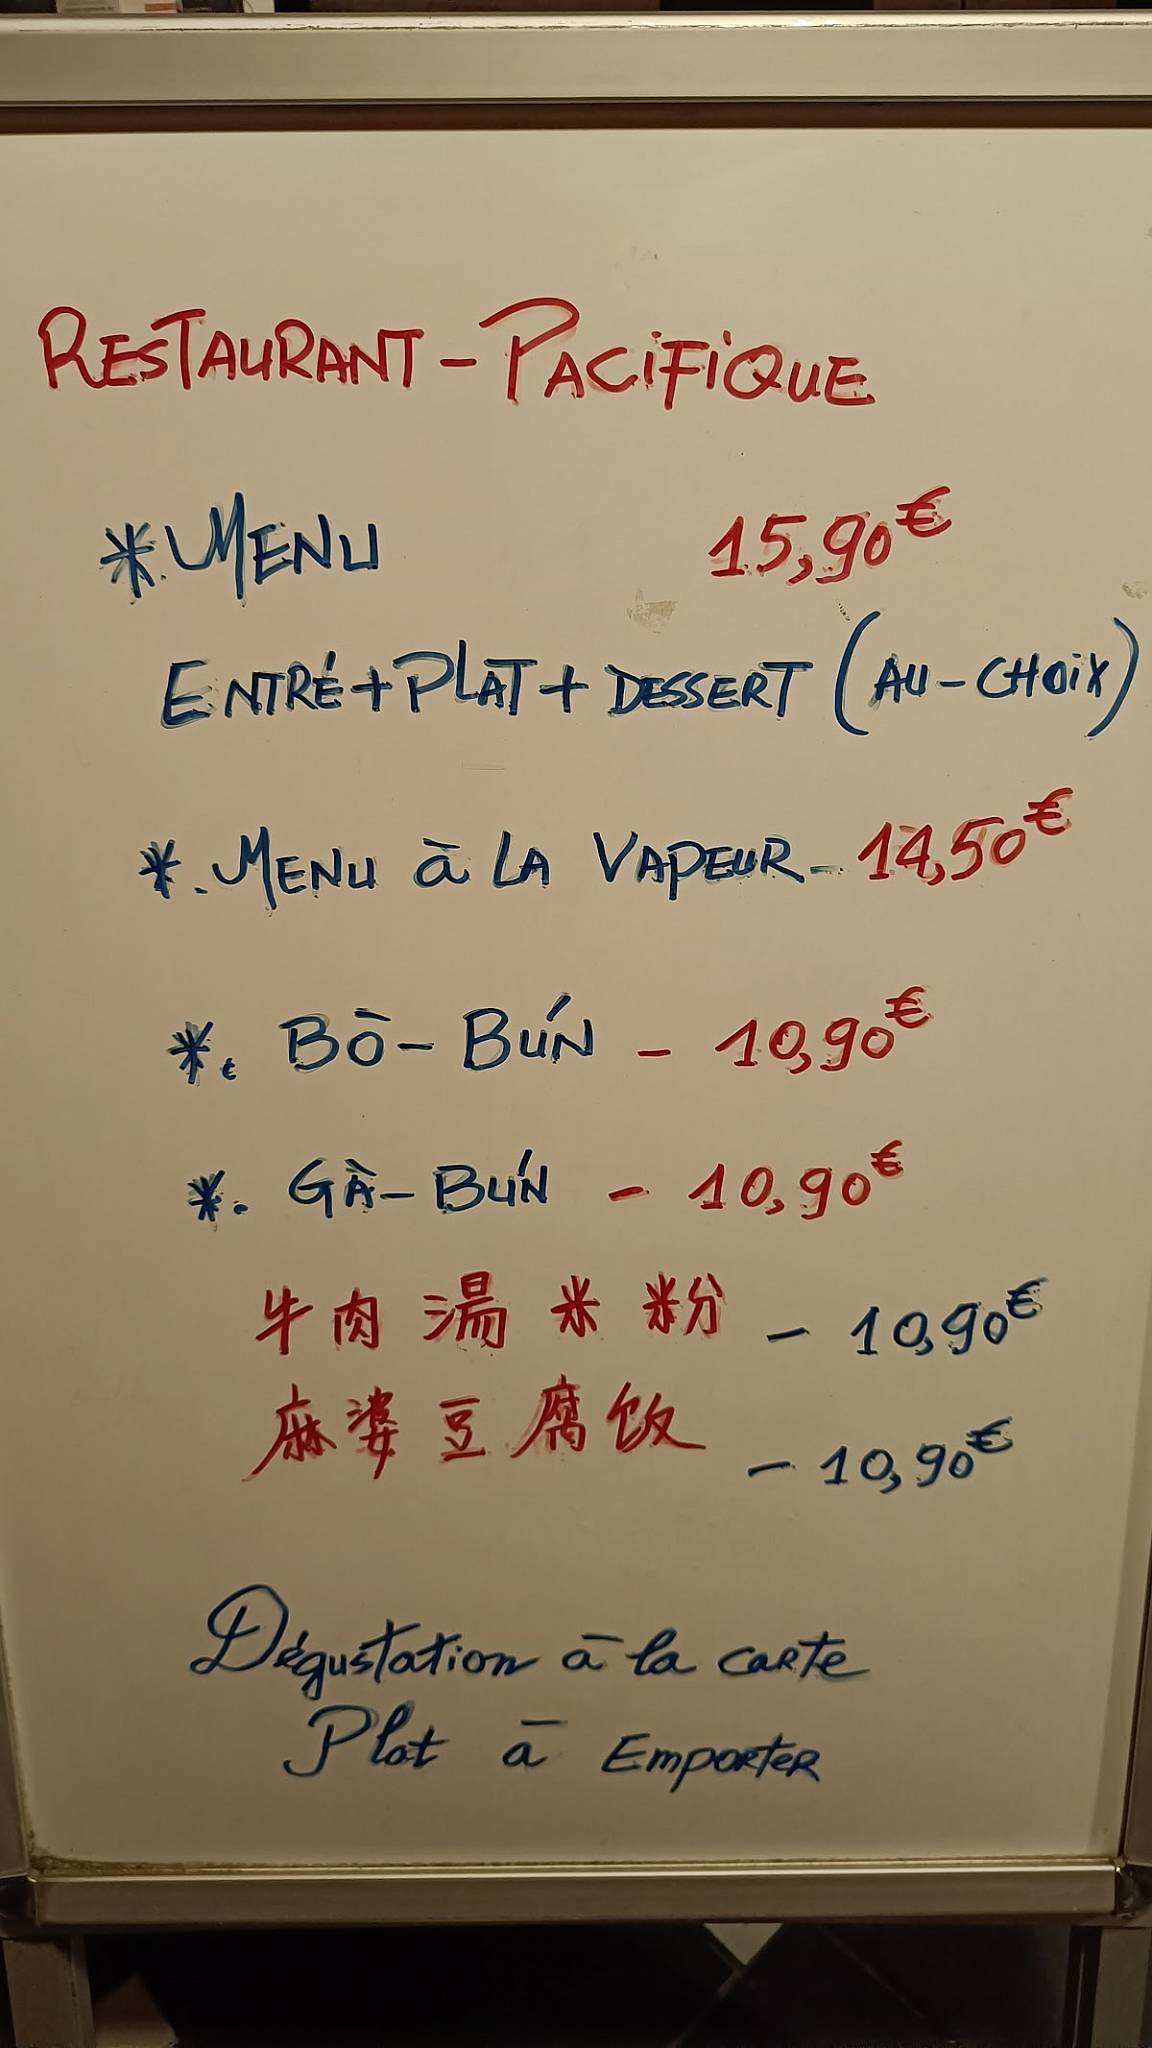 RESTAURANT - PACIFIQUE
*. MENU 15,90€
ENTRÉ + PLAT + DESSERT (AU-CHOIX)
*. MENU à LA VAPEUR - 14,50€
*. BÒ - BÚN - 10,90€
*. GÀ - BÚN - 10,90€
牛肉湯米粉 - 10,90€
麻婆豆腐饭 - 10,90€
Dégustation à la carte
Plat à EMPORTER